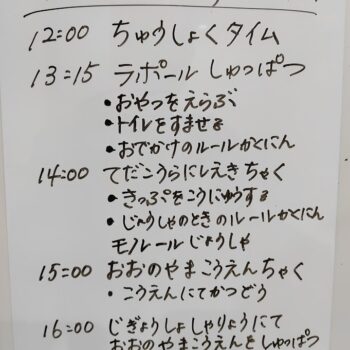 12:00 ちゅうしょくタイム
13:15 ラポール しゅっぱつ
・おやつをえらぶ
・トイレをすませる
・おでかけのルールかくにん
14:00 てだこうらにしえきちゃく
・きっぷをこうにゅうする
・じょうしゃのときのルールかくにん
モノレールじょうしゃ
15:00 おおのやまこうえんちゃく
・こうえんにてかつどう
16:00 じぎょうしょしゃりょうにて
おおのやまこうえんをしゅっぱつ